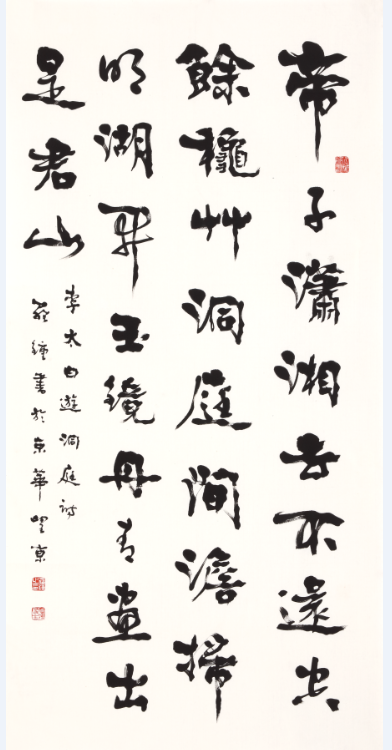 帝子瀟湘去不還空
餘龝艸洞庭間澹掃
明湖開玉鏡丹青畫出
是君山
李太白遊洞庭詩
書於京華望京